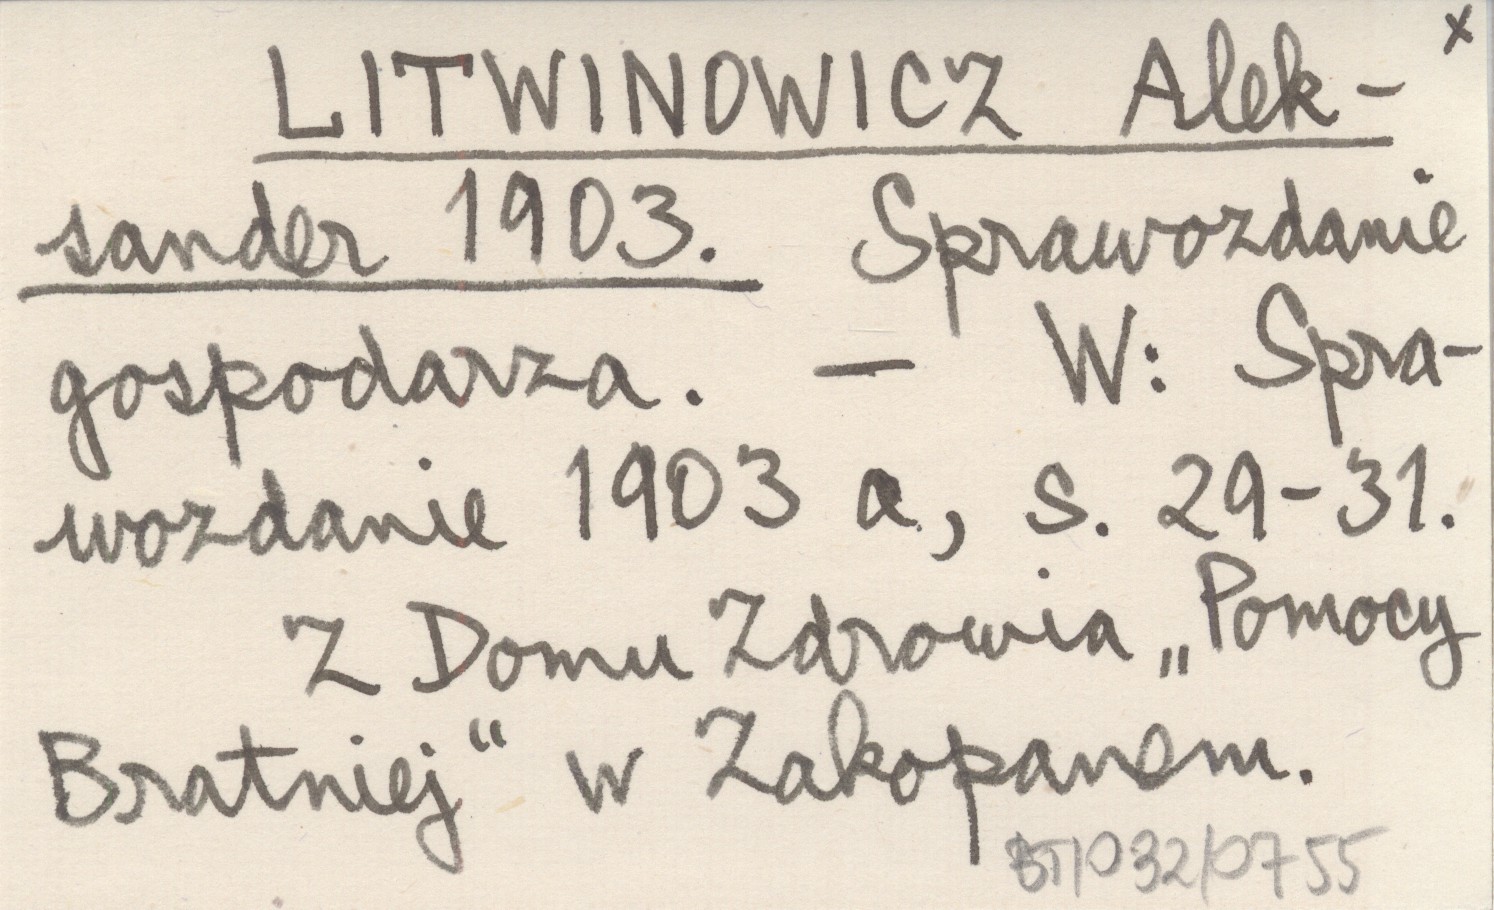 x
LITWINOWICZ Alek-
sander 1903. Sprawozdanie
gospodarza. — W: Spra-
wozdanie 1903 a, s. 29-31.
Z Domu Zdrowia „Pomocy
Bratniej" w Zakopanem.
BT/032/0755